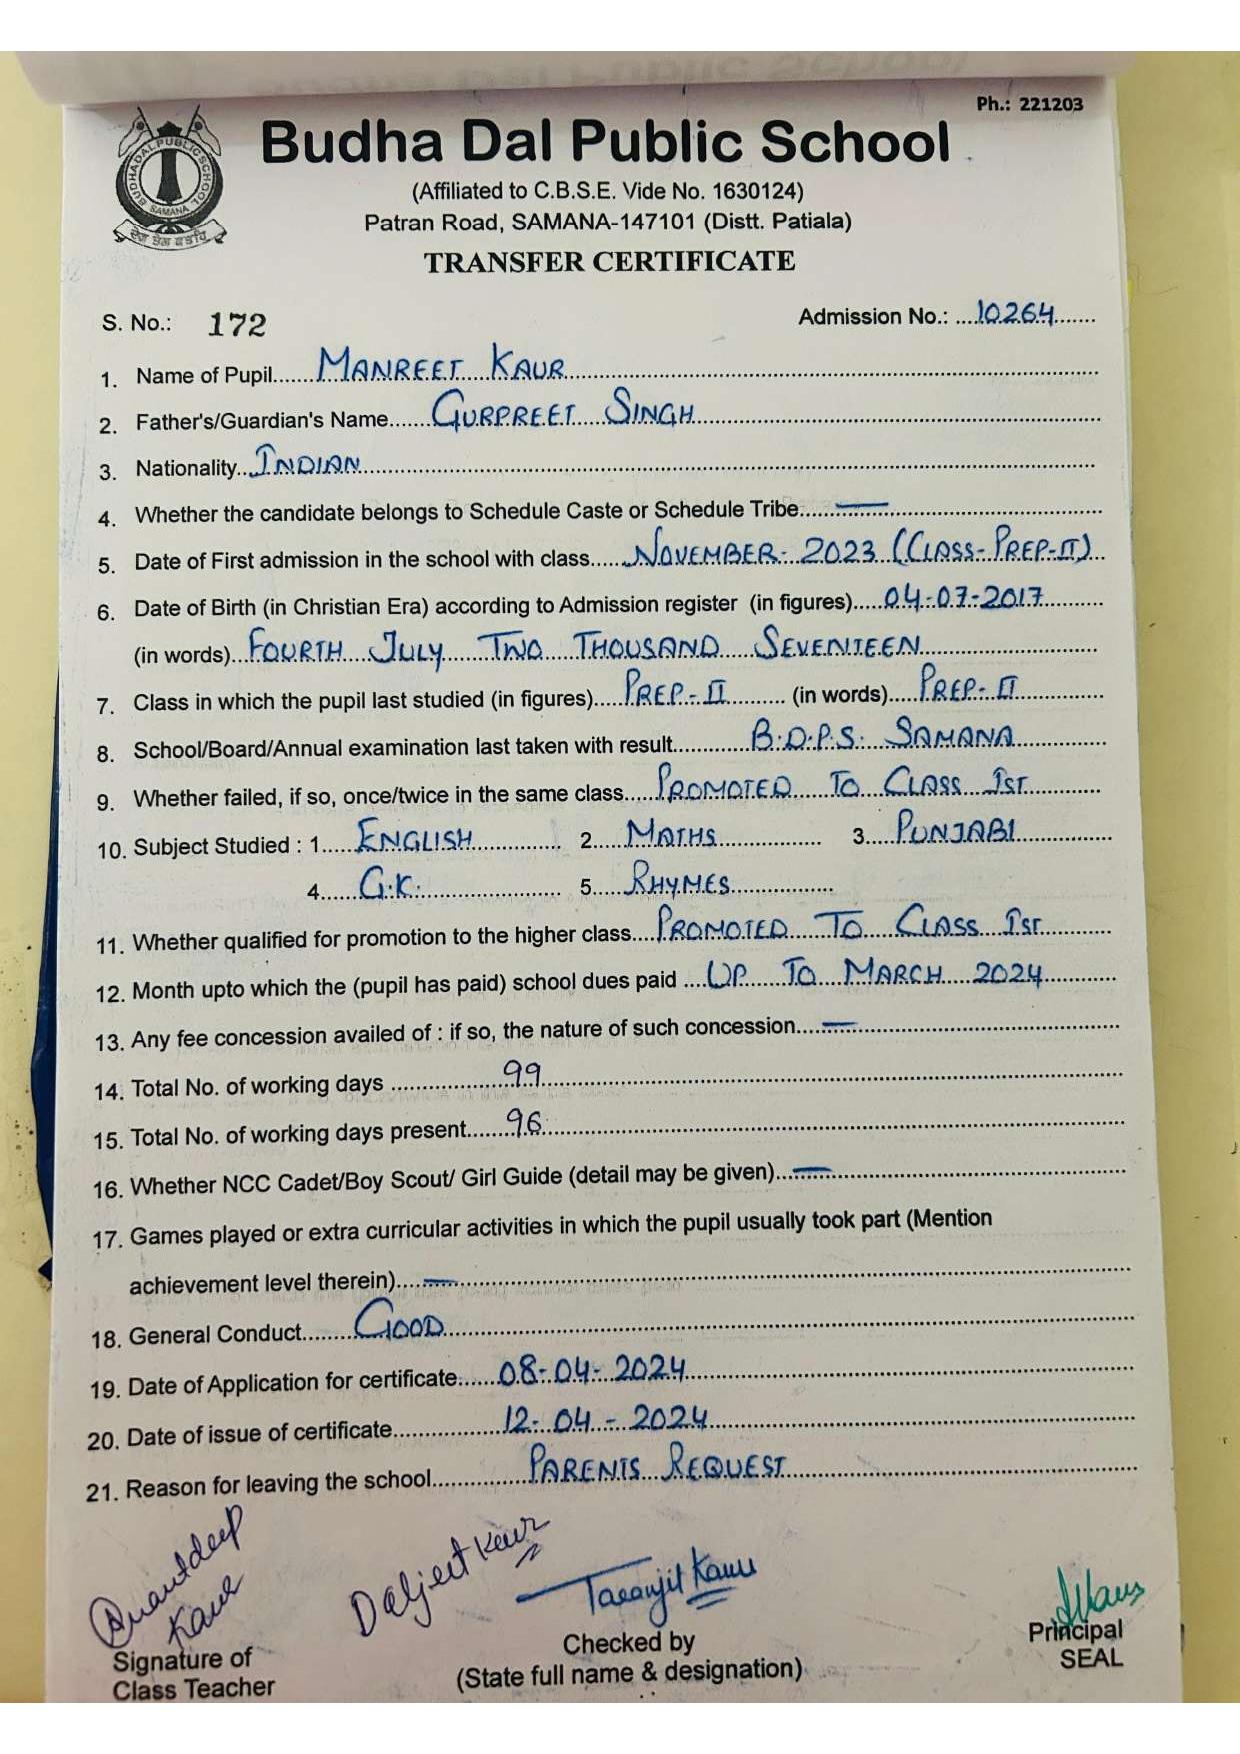 Ph.: 221203
BUDHA DAL PUBLIC SCHOOL
SAMANA
Budha Dal Public School
(Affiliated to C.B.S.E. Vide No. 1630124)
Patran Road, SAMANA-147101 (Distt. Patiala)
TRANSFER CERTIFICATE
S. No.: 172 Admission No.: 10264
1. Name of Pupil MANREET KAUR
2. Father's/Guardian's Name GURPREET SINGH
3. Nationality INDIAN
4. Whether the candidate belongs to Schedule Caste or Schedule Tribe —
5. Date of First admission in the school with class NOVEMBER-2023 (CLASS-PREP-II)
6. Date of Birth (in Christian Era) according to Admission register (in figures) 04-07-2017
(in words) FOURTH JULY TWO THOUSAND SEVENTEEN
7. Class in which the pupil last studied (in figures) PREP-II (in words) PREP-II
8. School/Board/Annual examination last taken with result B.D.P.S. SAMANA
9. Whether failed, if so, once/twice in the same class PROMOTED TO CLASS IST
10. Subject Studied : 1. ENGLISH 2. MATHS 3. PUNJABI
4. G.K. 5. RHYMES
11. Whether qualified for promotion to the higher class PROMOTED TO CLASS IST
12. Month upto which the (pupil has paid) school dues paid UP TO MARCH 2024
13. Any fee concession availed of : if so, the nature of such concession —
14. Total No. of working days 99
15. Total No. of working days present 96
16. Whether NCC Cadet/Boy Scout/ Girl Guide (detail may be given) —
17. Games played or extra curricular activities in which the pupil usually took part (Mention
achievement level therein) —
18. General Conduct GOOD
19. Date of Application for certificate 08-04-2024
20. Date of issue of certificate 12-04-2024
21. Reason for leaving the school PARENTS REQUEST
Kaur
Daljeet Kaur
Taranjit Kaur
Signature of
Class Teacher
Checked by
(State full name & designation)
Principal
SEAL